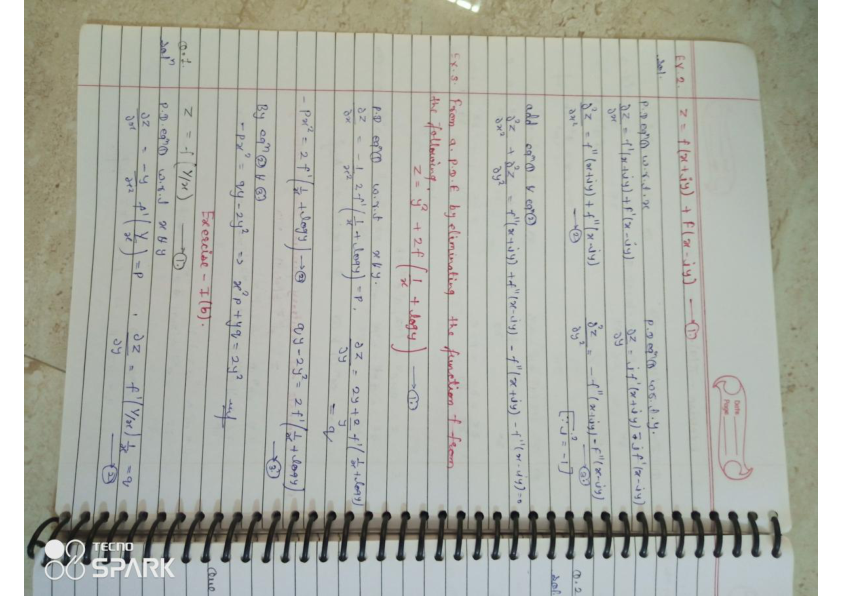 Date:
Page:
Ex 2. z = f(x+iy) + f(x-iy) —①
Sol.
P.D eqⁿ① w.r.t. x
∂z/∂x = f'(x+iy) + f'(x-iy)
∂²z/∂x² = f''(x+iy) + f''(x-iy) —②
P.D eqⁿ① w.r.t. y.
∂z/∂y = i f'(x+iy) - i f'(x-iy)
∂²z/∂y² = -f''(x+iy) - f''(x-iy) —③
[∵ i² = -1]
add eqⁿ② & eqⁿ③
∂²z/∂x² + ∂²z/∂y² = f''(x+iy) + f''(x-iy) - f''(x+iy) - f''(x-iy) = 0
Ex. 3. From a. P.D.E by eliminating the function f from
the following.
z = y² + 2f(1/x + log y) —①
P.D eqⁿ① w.r.t x & y.
∂z/∂x = -1/x² 2f'(1/x + log y) = p, ∂z/∂y = 2y + 2/y f'(1/x + log y) = q
-px² = 2f'(1/x + log y) —② qy - 2y² = 2f'(1/x + log y) —③
By eqⁿ② & ③
-px² = qy - 2y² ⇒ x²p + yq = 2y²
Exercise - I(b).
Q.1. z = f(y/x) —①
Solⁿ P.D. eqⁿ① w.r.t x & y
∂z/∂x = -y/x² f'(y/x) = p, ∂z/∂y = f'(y/x) 1/x = q —②
Q.2
Sol.
TECNO
SPARK